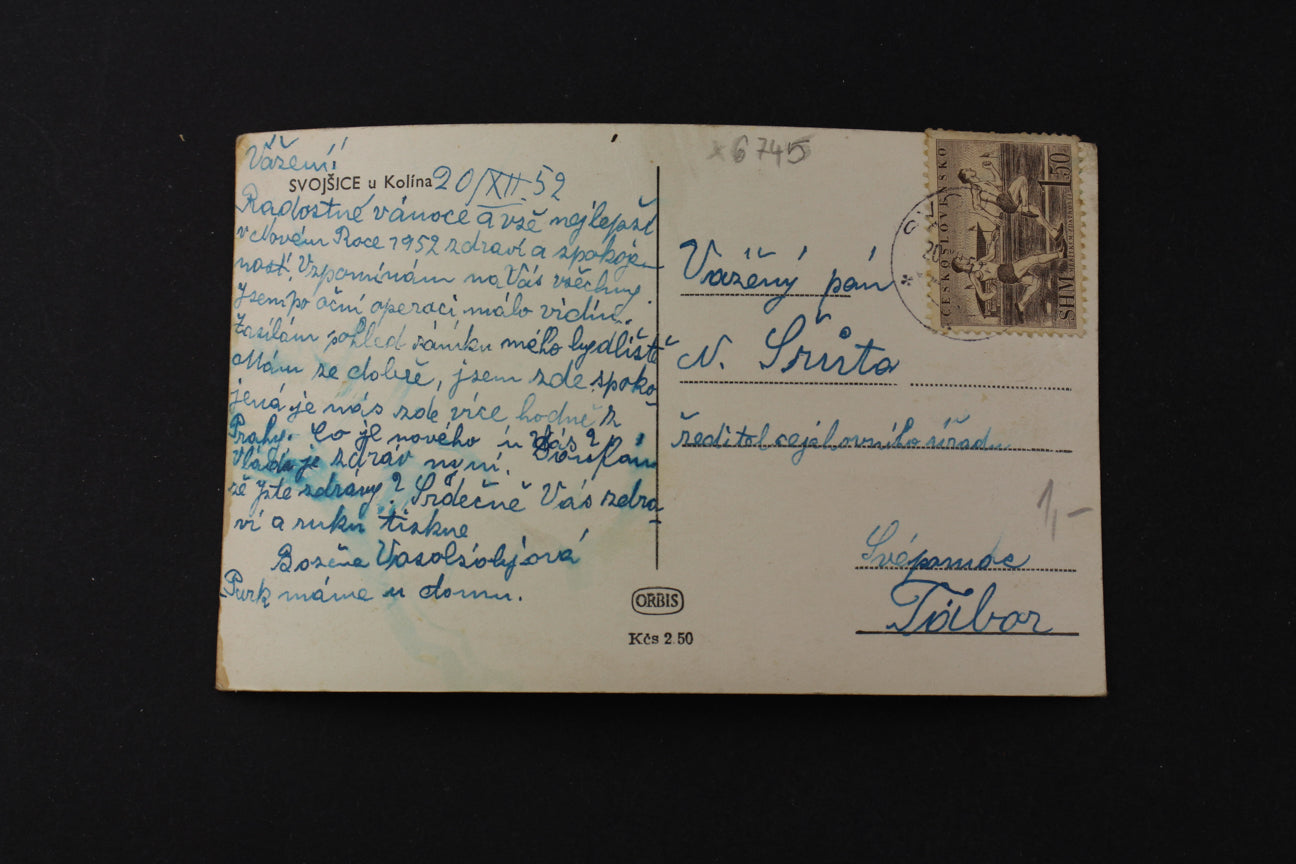 Vážení!
SVOJŠICE u Kolína 20/XII. 52
Radostné vánoce a vše nejlepší
v Novém Roce 1952 zdraví a spokoje-
nost. Vzpomínám na Vás všechny.
Jsem po oční operaci málo vidím.
Zasílám pohled zámku mého bydliště
Mám ze dobře, jsem zde spoko-
jená je nás zde více hodně z
Prahy. Co je nového u Vás?
Vláďa je zdráv nyní. Doufám
že jste zdrávy? Srdečně Vás zdra-
ví a ruku tiskne
Božena
Park máme u domu.
ORBIS
Kčs 2.50
x 6745
ČESKOSLOVENSKO
1.50
SHM
20
Vážený pán
N. Šrůta
ředitel cejchovního úřadu
1,-
Svépomoc
Tábor